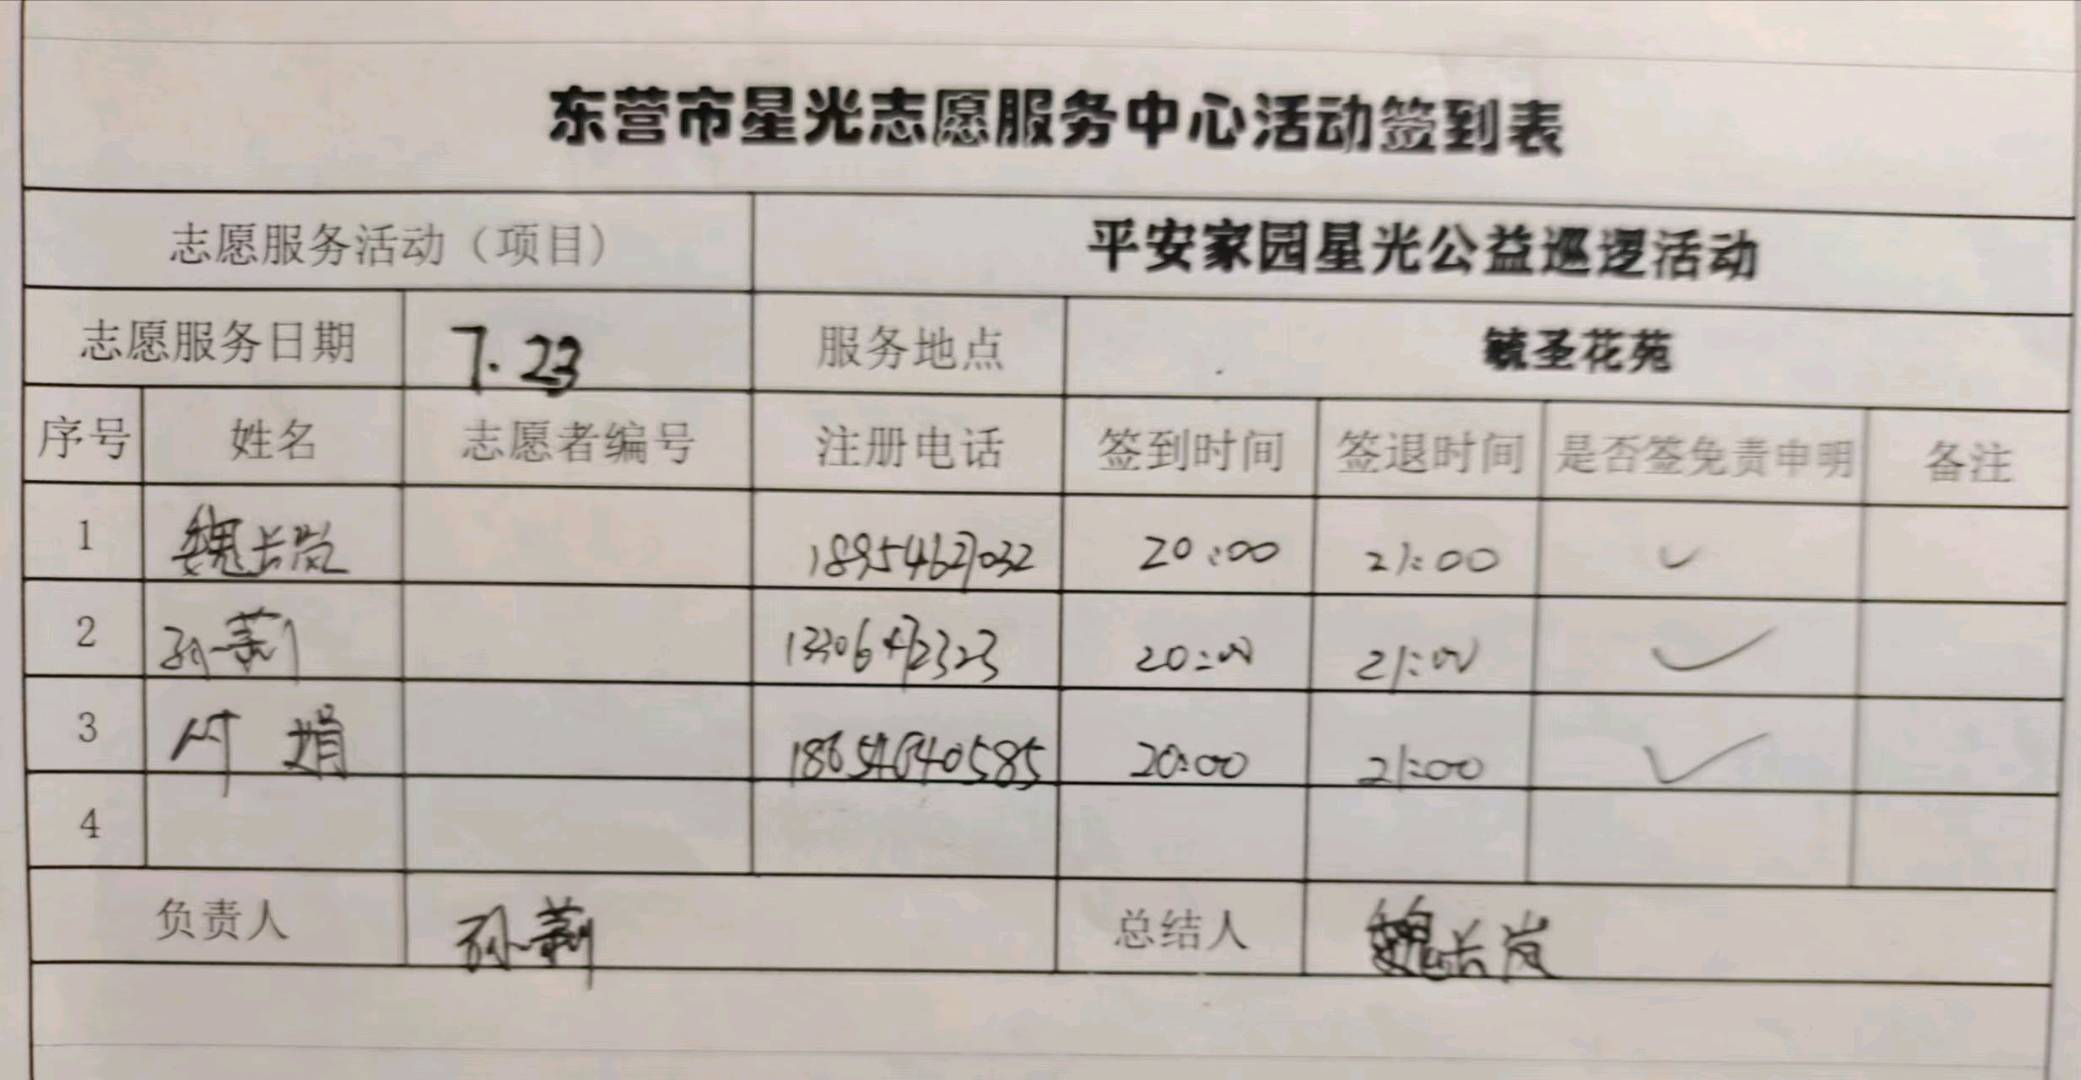 东营市星光志愿服务中心活动签到表
志愿服务活动（项目） 平安家园星光公益巡逻活动
志愿服务日期 7.23 服务地点 毓圣花苑
序号 姓名 志愿者编号 注册电话 签到时间 签退时间 是否签免责申明 备注
1 魏长岚 18954627032 20:00 21:00 ✓
2 孙莉 20:00 21:00 ✓
3 付娟 18654640585 20:00 21:00 ✓
4
负责人 孙莉 总结人 魏长岚